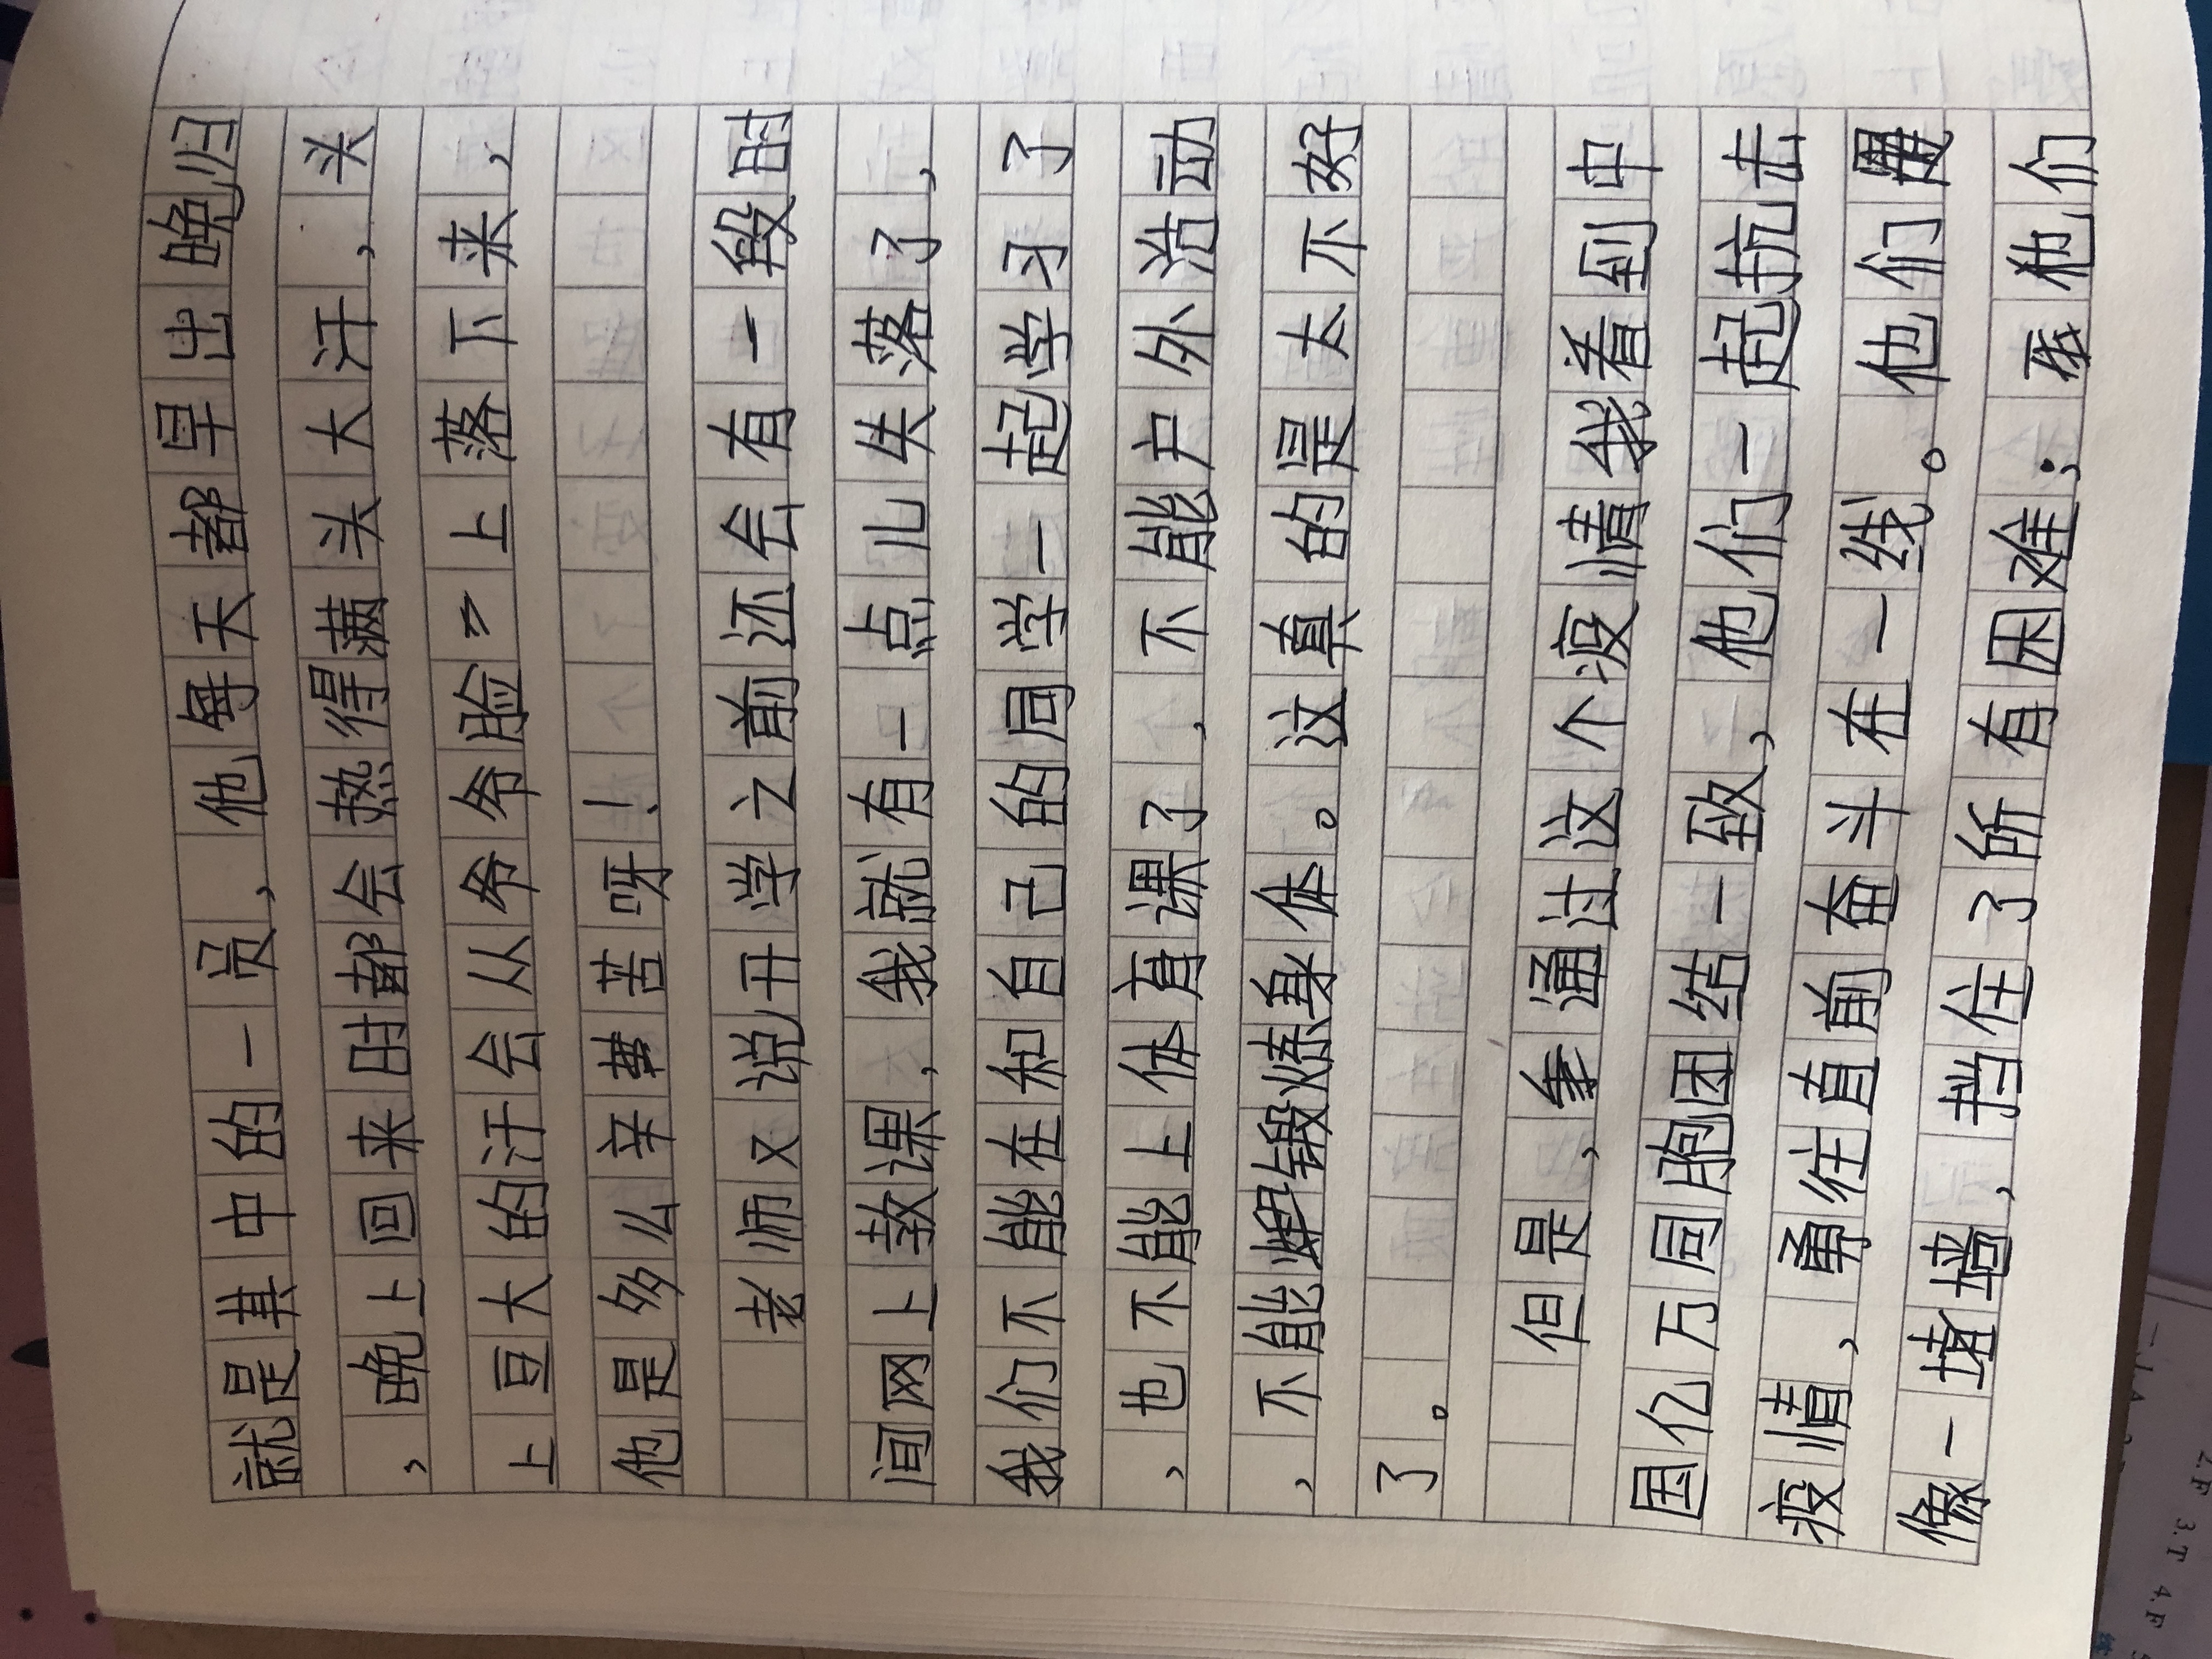 就是其中的一员，他每天都早出晚归
，晚上回来时都会热得满头大汗，头
上豆大的汗会从爷爷脸上落下来，
他是多么辛苦呀！
老师又说开学之前还会有一段时
间网上教课，我就有一点儿失落了，
我们不能在和自己的同学一起学习了
，也不能上体育课了，不能户外活动
，不能锻炼身体。这真的是太不好
了。
但是，通过这个疫情我看到中
国亿万同胞团结一致，他们一起抗击
疫情，勇往直前奋斗在一线。他们
像一堵墙，挡住了所有困难；他们
2.F 3.T 4.F